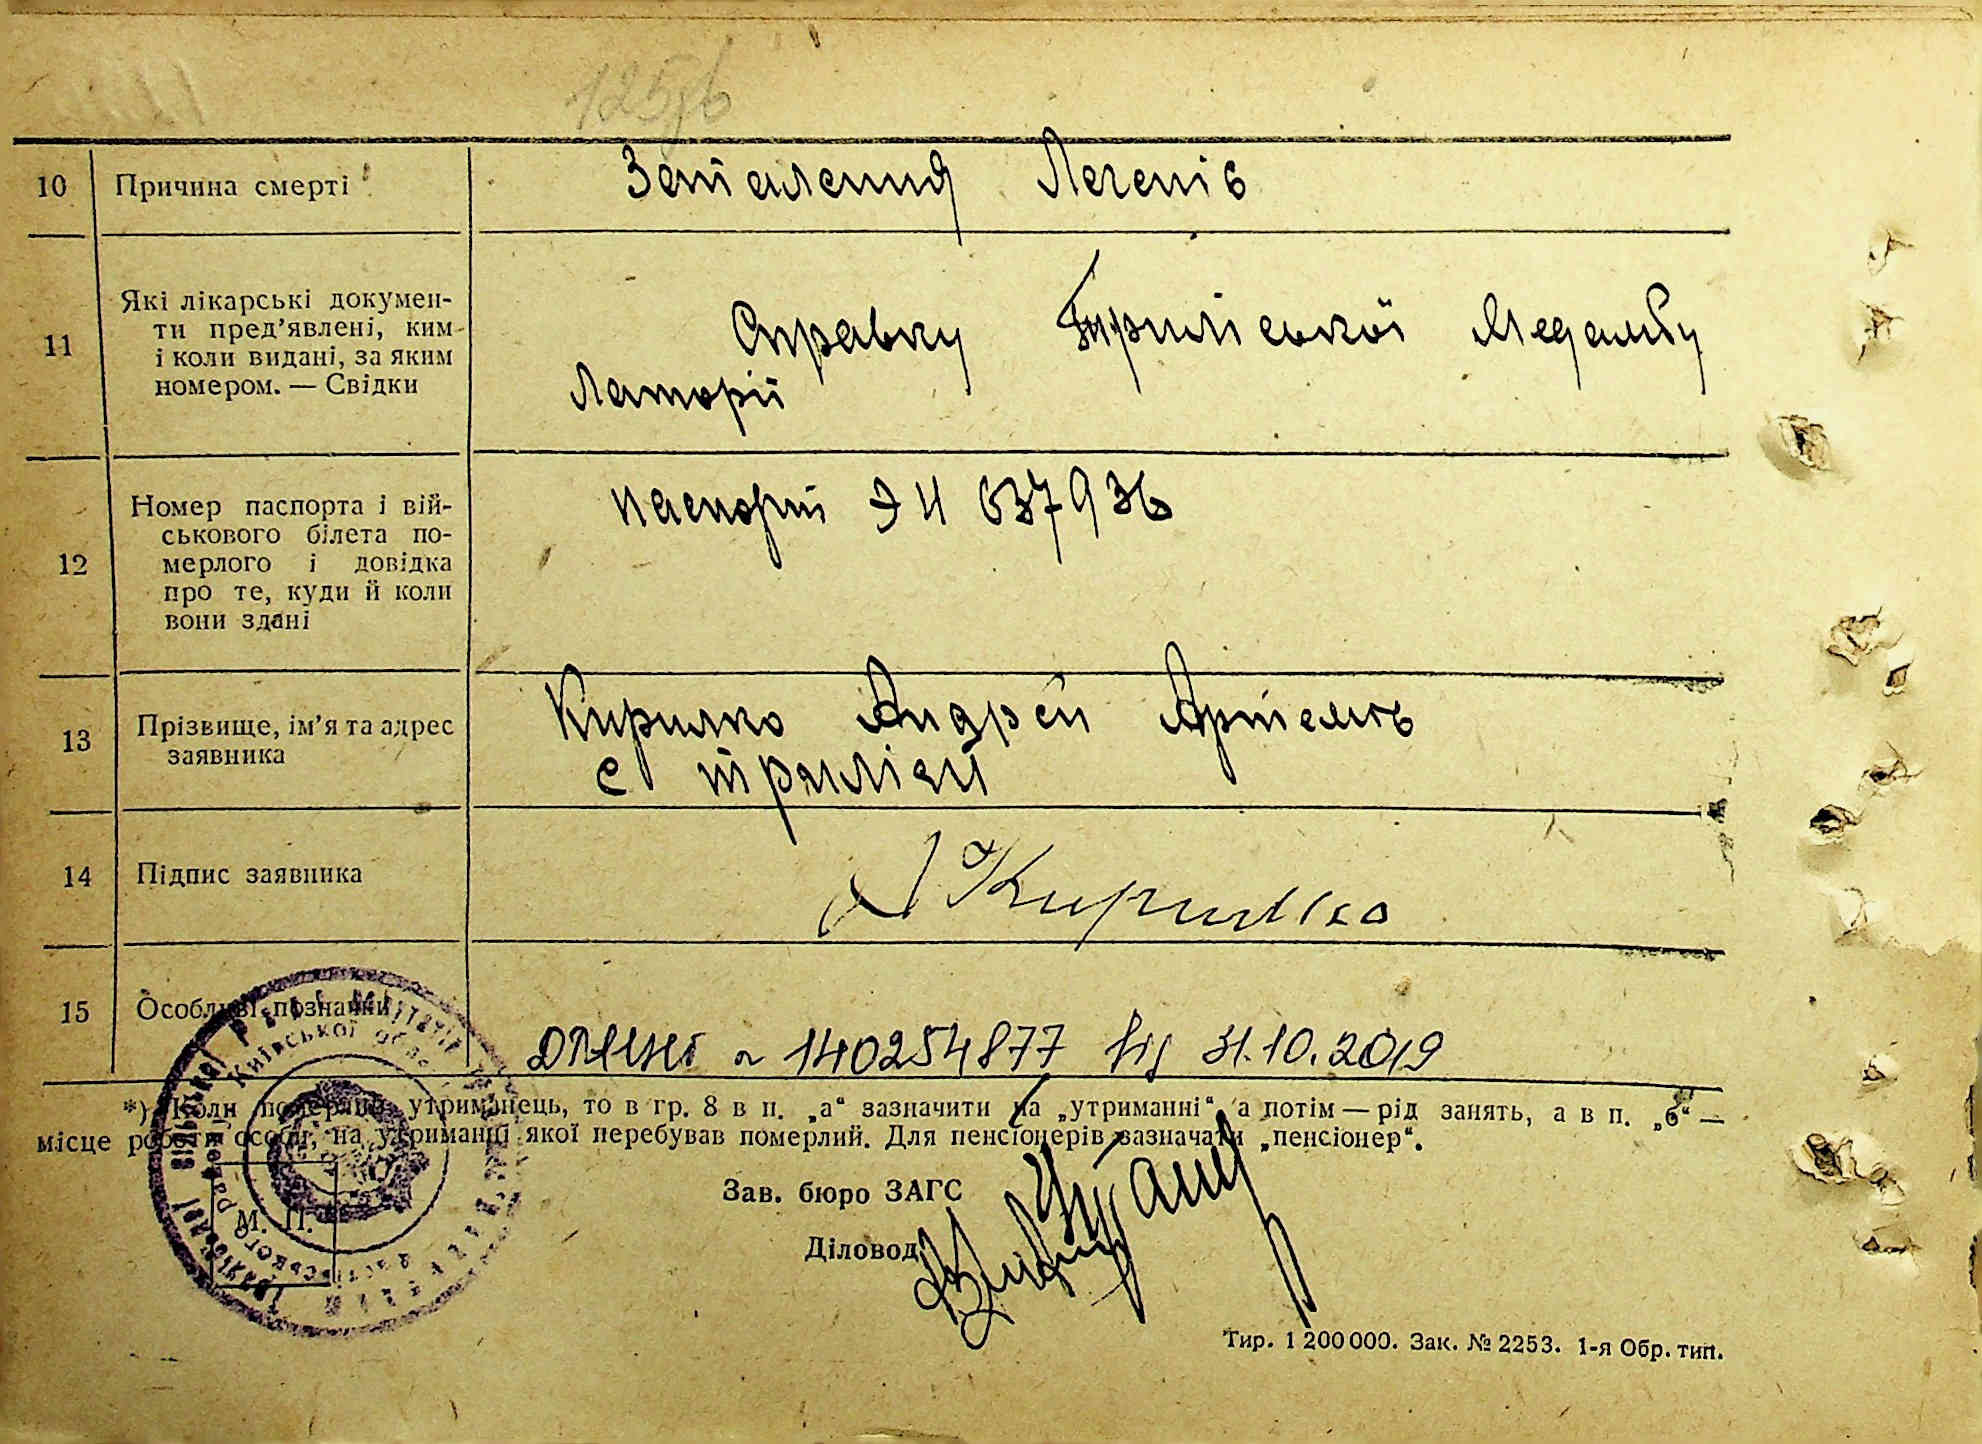 10 Причина смерті Запалення Легенів
11 Які лікарські докумен-
ти пред'явлені, ким
і коли видані, за яким
номером. — Свідки
Справку Трилісської Медамбу
латорії
12 Номер паспорта і вій-
ськового білета по-
мерлого і довідка
про те, куди й коли
вони здані
паспорт ЭЧ 637936
13 Прізвище, ім'я та адрес
заявника
Кирилко Андрей Артемов
с триліси
14 Підпис заявника А Кирилко
15 Особливі познанки
№ 140254877 від 31.10.2019
*) Коли померлий утриманець, то в гр. 8 в п. „а“ зазначити на „утриманні“ а потім — рід занять, а в п. „б“ —
місце роботи особи, на утриманні якої перебував померлий. Для пенсіонерів зазначати „пенсіонер“.
Зав. бюро ЗАГС
Діловод
М. П.
Київської
Тир. 1 200 000. Зак. № 2253. 1-я Обр. тип.